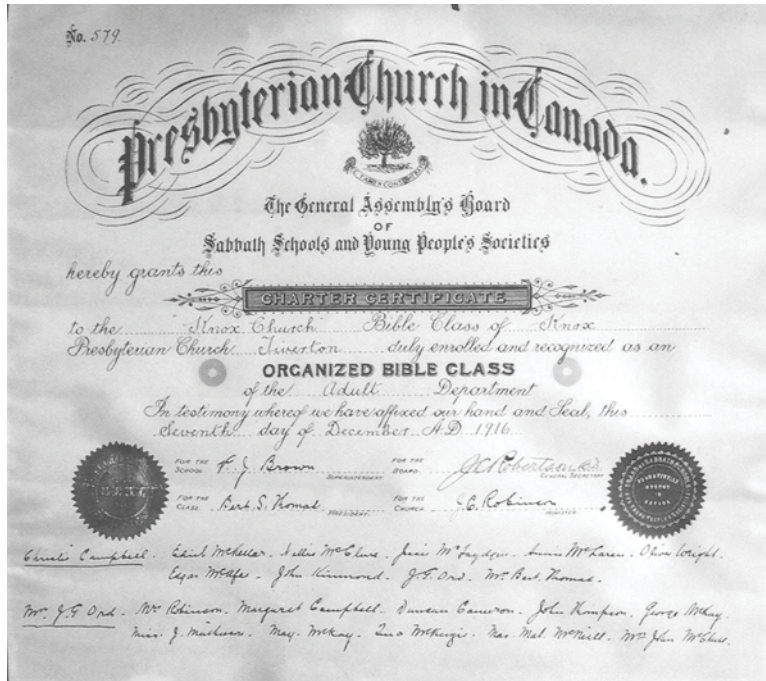 No. 579.
Presbyterian Church in Canada.
The General Assembly's Board
OF
Sabbath Schools and Young People's Societies
hereby grants this
CHARTER CERTIFICATE
to the Knox Church Bible Class of Knox
Presbyterian Church Tiverton duly enrolled and recognized as an
ORGANIZED BIBLE CLASS
of the Adult Department
In testimony whereof we have affixed our hand and Seal, this
Seventh day of December A.D. 1916
FOR THE SCHOOL. F. J. Brown SUPERINTENDENT FOR THE BOARD. J.C. Robertson GENERAL SECRETARY
FOR THE CLASS. Bert. S. Thomas PRESIDENT. FOR THE CHURCH J. C. Robinson MINISTER
Christie Campbell. Edith McKellar. Nellie McClure. Jessie Annie McLaren. Oliver Wright.
Edgar McAfee. John Kinmond. J. G. Ord. Mrs Bert. Thomas.
Mrs. J. G Ord. Mrs Robinson. Margaret Campbell. Duncan Cameron. John Thompson. George McKay.
Miss. J. May. McKay. McKenzie. Mal. McNeill. Mrs John McClure.